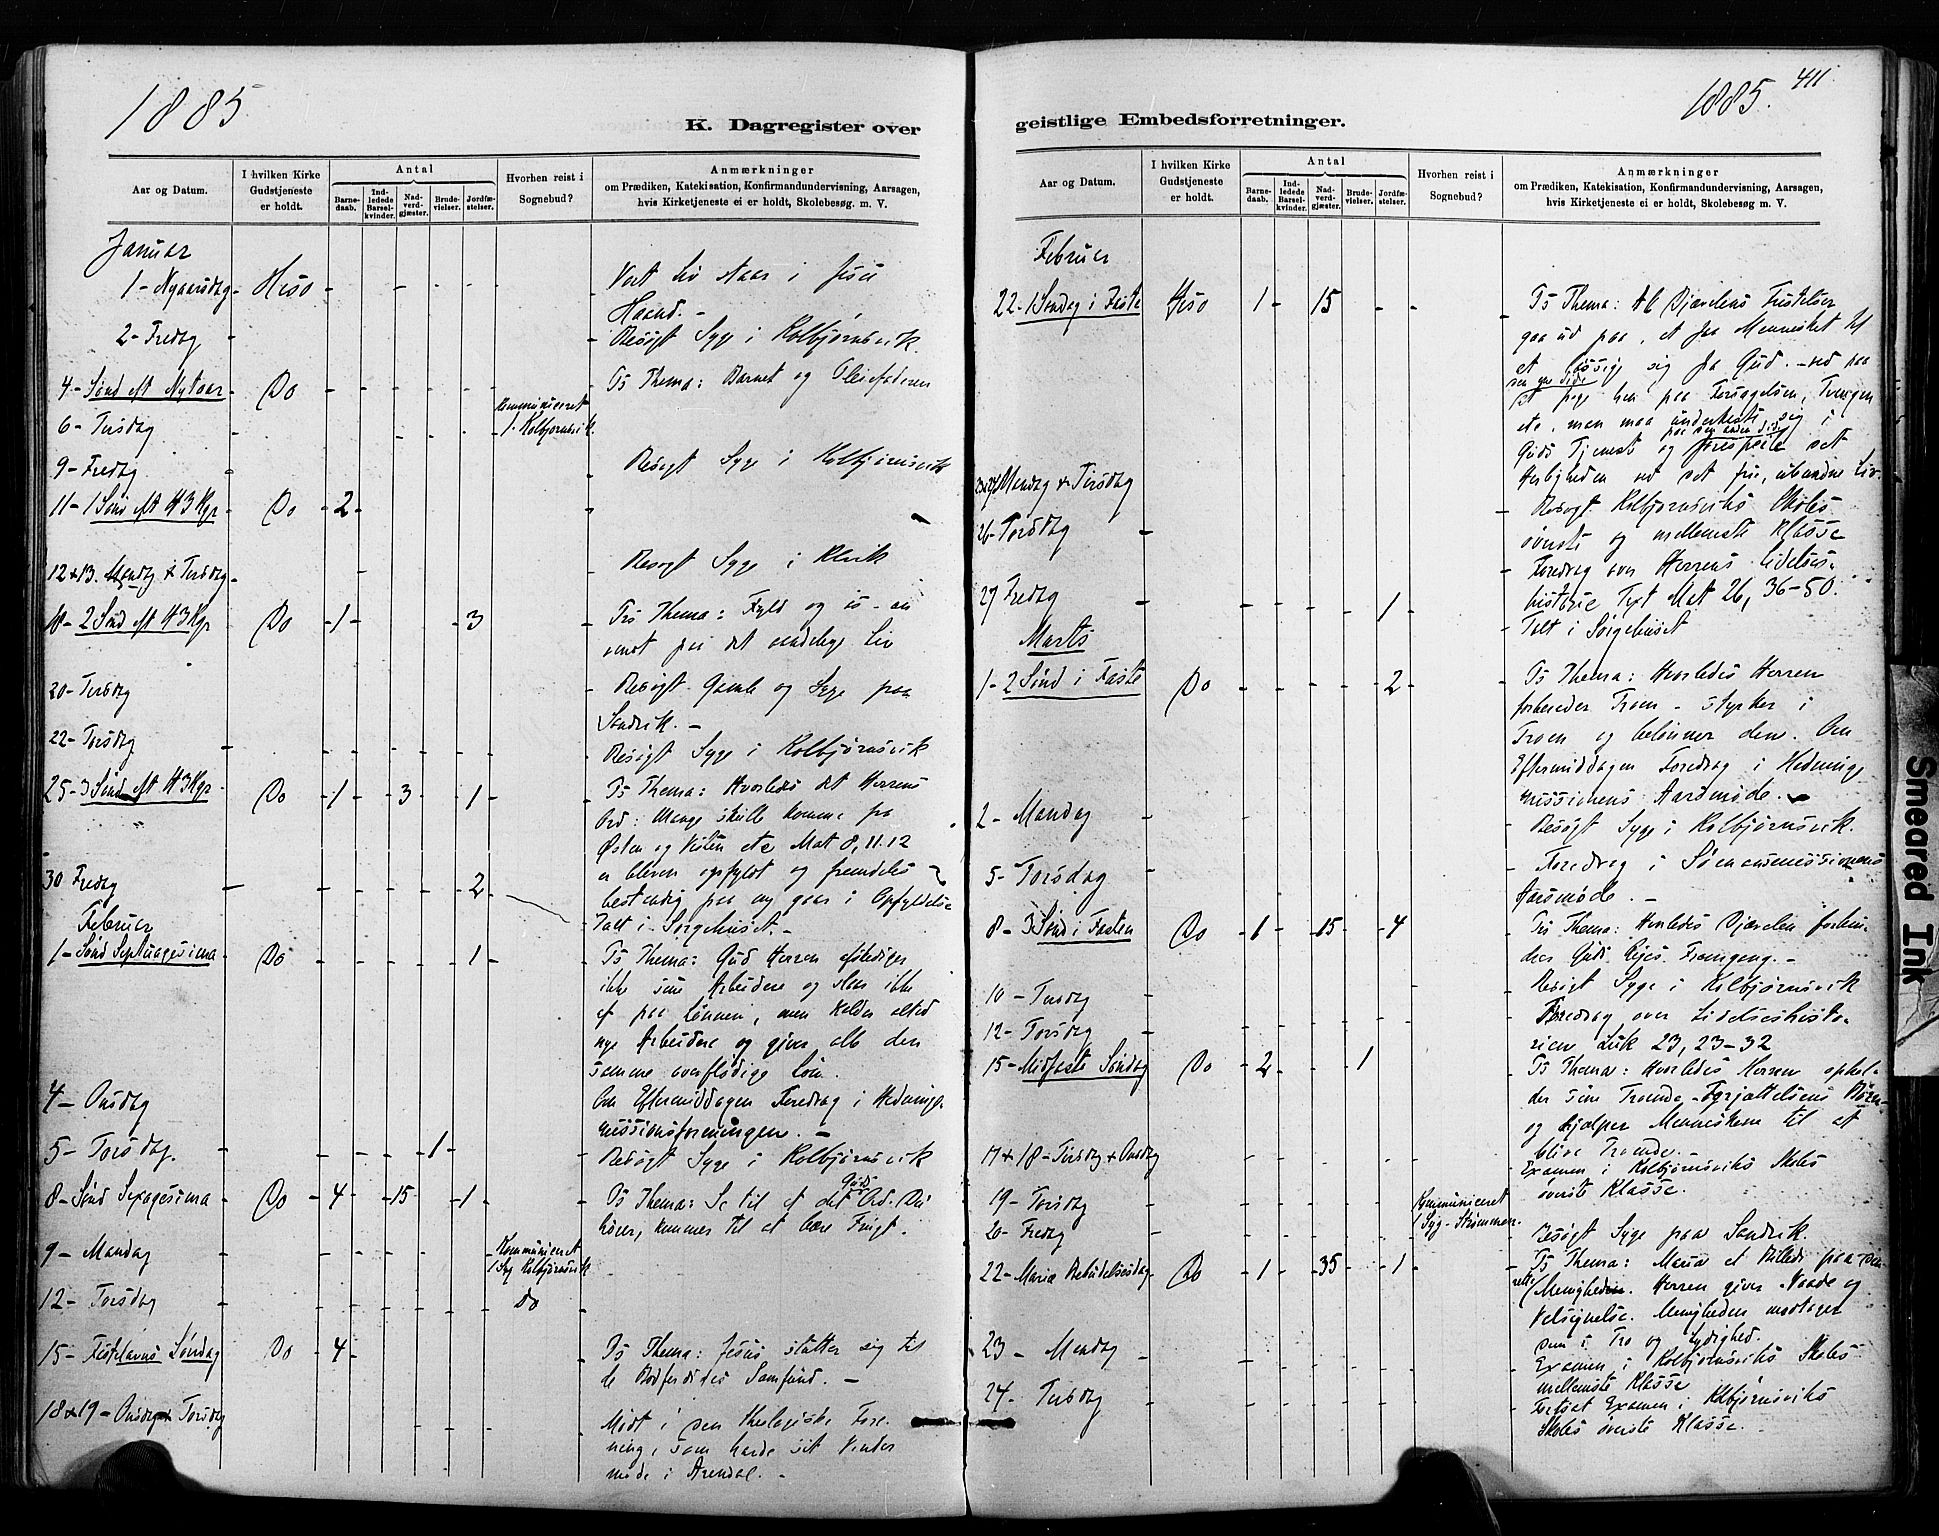 1885
K. Dagregister over
Aar og Datum.
I hvilken Kirke Gudstjeneste er holdt.
Antal
Barnedaab.
Indledede Barselkvinder.
Nadverdgjæster.
Brudevielser.
Jordfæstelser.
Hvorhen reist i Sognebud?
Anmærkninger
om Prædiken, Katekisation, Konfirmandundervisning, Aarsagen,
hvis Kirketjeneste ei er holdt, Skolebesøg. m. V.
Januar
1 - Nyaarsdag - Hisø - Vort Liv staar i Jesu
Haand. -
2 - Fredag - Besøgt Syge i Kolbjørnsvik.
4 - Sønd eft Nytaar - Do - Ts Thema: Barnet og Pleiefaderen
6 - Tirsdag - Kommuniceret
1. Kolbjørnsvik.
9 - Fredag - Besøgt Syge i Kolbjørnsvik
11 - 1 Sønd eft H3Kgr - Do - 2 -
12 & 13. Mandag & Tirsdag - Besøgt Syge i
18 - 2 Sønd eft H3Kgr - Do - 1 - 3 - Ts Thema: Fyld og øs - an
vendt paa det aandelige Liv
20 - Tirsdag - Besøgt Gamle og Syge paa
Sandvik. -
22 - Torsdag - Besøgt Syge i Kolbjørnsvik
25 - 3 Sønd eft H3Kgr - Do - 1 - 3 - 1 - Ts Thema: Hvorledes det Herrens
Ord: Mange skulle komme fra
Østen og Vesten etc Mat 8, 11. 12
er bleven opfyldt og fremdeles
bestandig paa ny gaar i Opfyldelse
30 Fredag - 2 - Talt i Sørgehuset. -
Februar
1 - Sønd Septuagesima - Do - 1 - Ts Thema: Gud Herren afskediger
ikke sine Arbeidere og slaar ikke
af paa Lønnen, men kalder altid
nye Arbeidere og giver alle den
samme overflødige Løn.
Om Eftermiddagen Foredrag i Hedninge-
missionsforeningen. -
4 - Onsdag
5 - Torsdag. - 1 - Besøgt Syge i Kolbjørnsvik
8 - Sønd Sexagesima - Do - 4 - 15 - 1 - Ts Thema: Se til at det Guds Ord, Du
hører, kommer til at bære Frugt.
9 - Mandag - Kommuniceret
1 Syg Kolbjørnsvik
12 - Torsdag - Do
15 - Fastelavns Søndag - Do - 4 - Ts Thema: Jesus slutter sig til
de Bodfærdiges Samfund. -
18 & 19 - Onsdag & Torsdag - Mødt i den theologiske Fore-
ning, som havde sit Vinter
møde i Arendal. -
411
1885.
geistlige Embedsforretninger.
Aar og Datum.
I hvilken Kirke Gudstjeneste er holdt.
Antal
Barnedaab.
Indledede Barselkvinder.
Nadverdgjæster.
Brudevielser.
Jordfæstelser.
Hvorhen reist i Sognebud?
Anmærkninger
om Prædiken, Katekisation, Konfirmandundervisning, Aarsagen,
hvis Kirketjeneste ei er holdt, Skolebesøg m. V.
Februar
22 - 1 Søndag i Faste - Hisø - 1 - 15 - Ts Thema: At Djævelens Fristelser
gaa ud paa, at faa Mennesket til
at løsrive sig fra Gud - ved paa
den ene Side
at pege hen paa Forsagelsen, Tvangen
etc. man maa underkaste sig i
Guds Tjeneste og paa den anden Side forespeile det
Herligheden ved det frie, ubundne Liv.
Mandag & Tirsdag - Besøgt Kolbjørnsviks Skoles
øverste og mellemste Klasse
26 - Torsdag - Foredrag over Herrens Lidelses-
historie Text Mat 26, 36-50.
27 Fredag - 1 - Talt i Sørgehuset
Marts
1 - 2 Sønd i Faste - Do - 2 - Ts Thema: Hvorledes Herren
forbereder Troen - styrker i
Troen og belønner den. Om
Eftermiddagen Foredrag i Hedninge
missionens Aarsmøde.
2 - Mandag - Besøgt Syge i Kolbjørnsvik.
5 - Torsdag - Foredrag i Sømandsmissionens
Aarsmøde. -
8 - 3 Sønd i Fasten - Do - 1 - 15 - 4 - Ts Thema: Hvorledes Djævelen forhin-
drer Guds Riges Fremgang. -
10 - Tirsdag - Besøgt Syge i Kolbjørnsvik
12 - Torsdag - Foredrag over Lidelseshisto-
rien Luk 23, 23-32
15 - Midfaste Søndag - Do - 2 - 1 - Ts Thema: Hvorledes Herren ophol-
der sine Troende - Forjættelsens Børn -
og hjælper Menneskene til at
blive Troende. -
17 & 18 - Tirsdag & Onsdag - Examen i Kolbjørnsviks Skoles
øverste Klasse.
19 - Torsdag - Kommuniceret
1 Syg - Strømmen.
20 - Fredag - Besøgt Syge paa Sandvik.
22 - Maria Bebudelsesdag - Do - 1 - 35 - 1 - Ts Thema: Maria et Billede paa den
rette Menigheden. Herren giver Naade og
Velsignelse. Menigheden modtager
dem i Tro og Lydighed.
23 - Mandag - Examen i Kolbjørnsviks Skoles
mellemste Klasse
24 - Tirsdag - Fortsat Examen i Kolbjørnsviks
Skoles øverste Klasse.
Smeared Ink